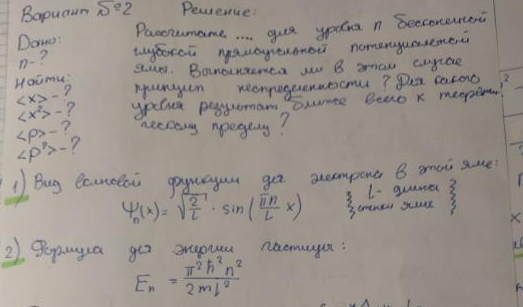 Вариант №2 Решение:
Дано: Рассчитать ...., для уровня n бесконечной
n-? глубокой прямоугольной потенциальной
Найти: ямы. Выполняется ли в этом случае
<x>-? принцип неопределенности? Для какого
<x²>-? уровня результат ближе всего к теорети-
<p>-? ческому пределу?
<p²>-?
1) Вид волновой функции для электрона в этой яме:
Ψn(x) = √(2/L) · sin(πn/L x) { L - длина стенки ямы }
2) Формула для энергии частицы:
En = π²ħ²n² / 2mL²